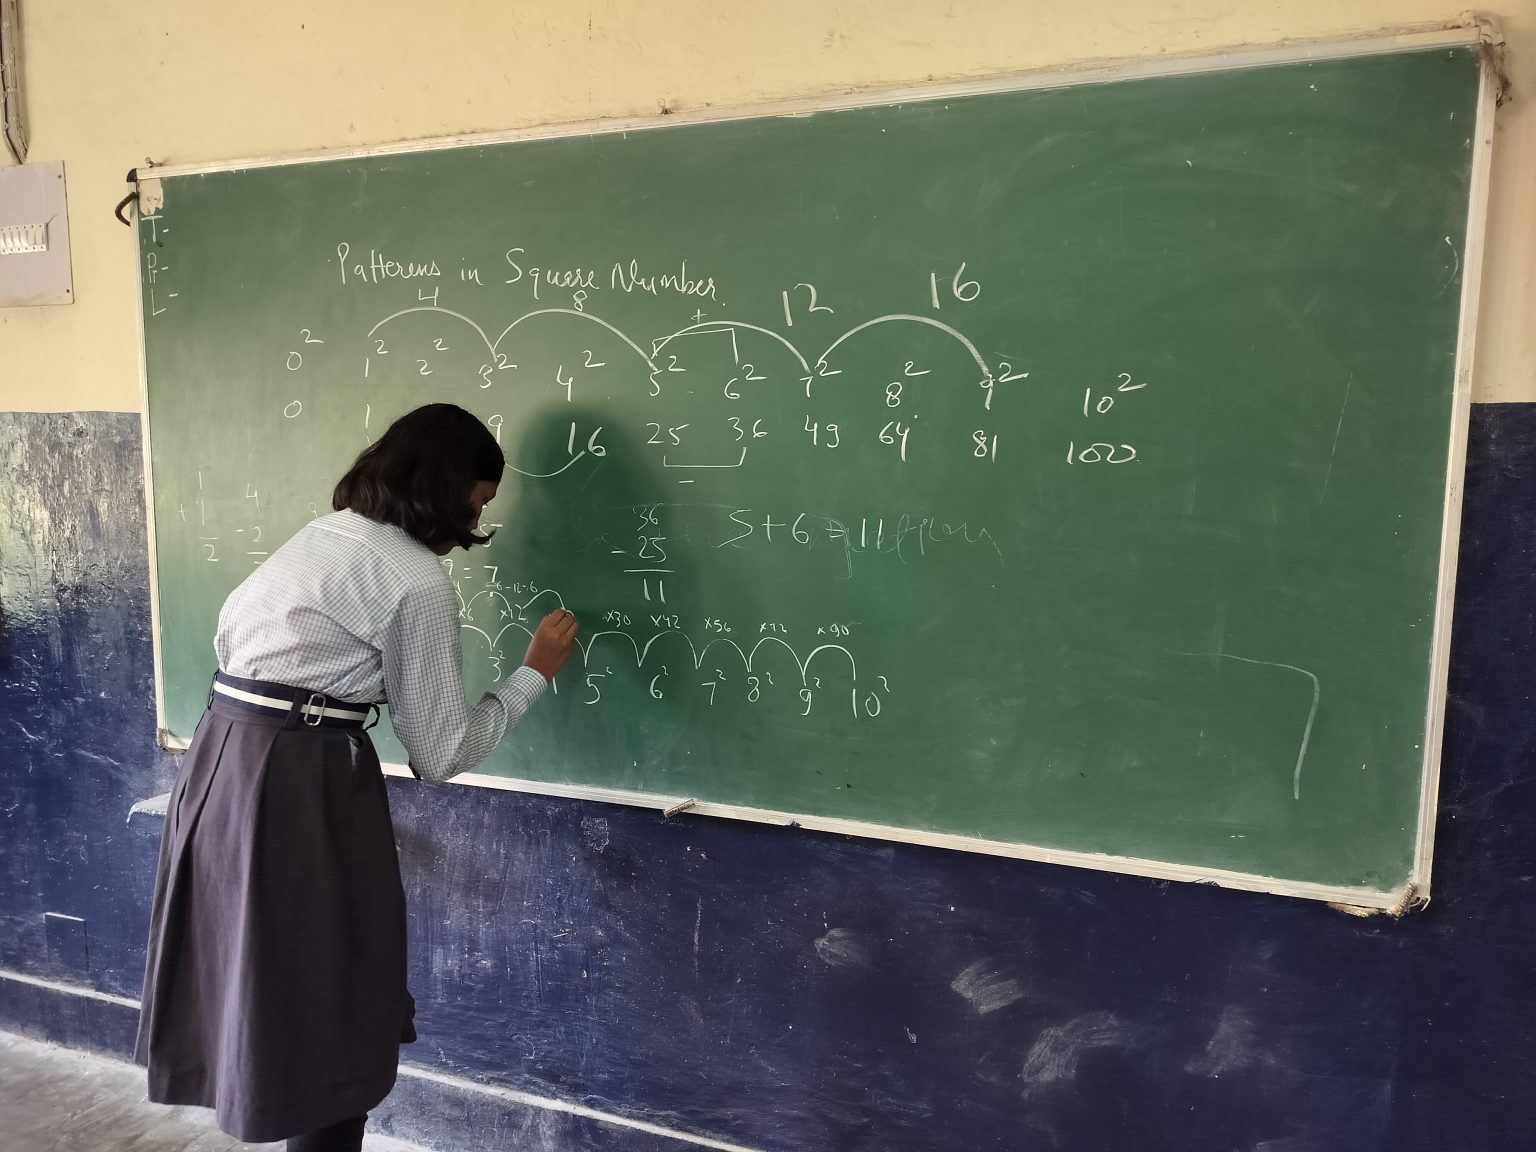 T-
P-
L-
Patterens in Square Number
4 8 12 16
+
0² 1² 2² 3² 4² 5² 6² 7² 8² 9² 10²
0 1 9 16 25 36 49 64 81 100
-
1
+ 1
2
4
- 2
36
- 25
11
5+6=11
9 = 7
×6 ×12 ×30 ×42 ×56 ×72 ×90
3² 5² 6² 7² 8² 9² 10²